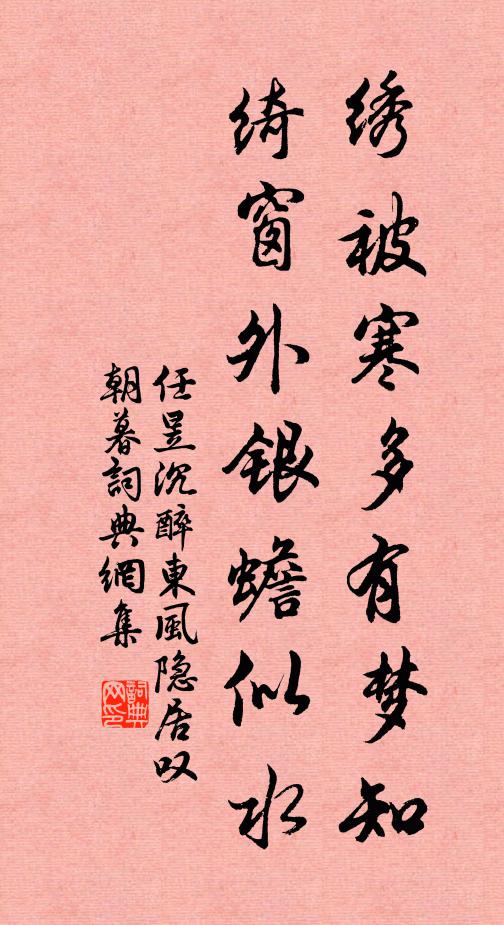 绣被寒多有梦知
绮窗外银蟾似水
任昱沉醉東風隐居叹
朝暮詞典網集
詞典网印